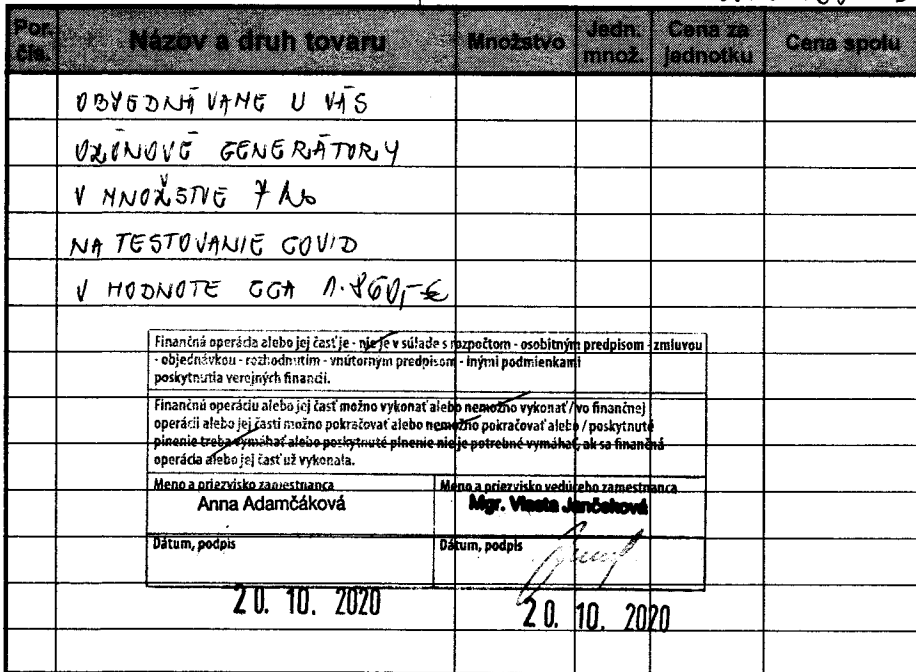 Por. čís. Názov a druh tovaru Množstvo Jedn. množ. Cena za jednotku Cena spolu
OBJEDNÁVAME U VÁS
OZÓNOVÉ GENERÁTORY
V MNOŽSTVE 7 ks
NA TESTOVANIE COVID
V HODNOTE CCA 1.860,-€
Finančná operácia alebo jej časť je - nie je v súlade s rozpočtom - osobitným predpisom - zmluvou
- objednávkou - rozhodnutím - vnútorným predpisom - inými podmienkami
poskytnutia verejných financií.
Finančnú operáciu alebo jej časť možno vykonať alebo nemožno vykonať / vo finančnej
operácii alebo jej časti možno pokračovať alebo nemožno pokračovať alebo / poskytnuté
plnenie treba vymáhať alebo poskytnuté plnenie nie je potrebné vymáhať, ak sa finančná
operácia alebo jej časť už vykonala.
Meno a priezvisko zamestnanca Meno a priezvisko vedúceho zamestnanca
Anna Adamčáková Mgr. Vlasta Jančehová
Dátum, podpis Dátum, podpis
20. 10. 2020 20. 10. 2020